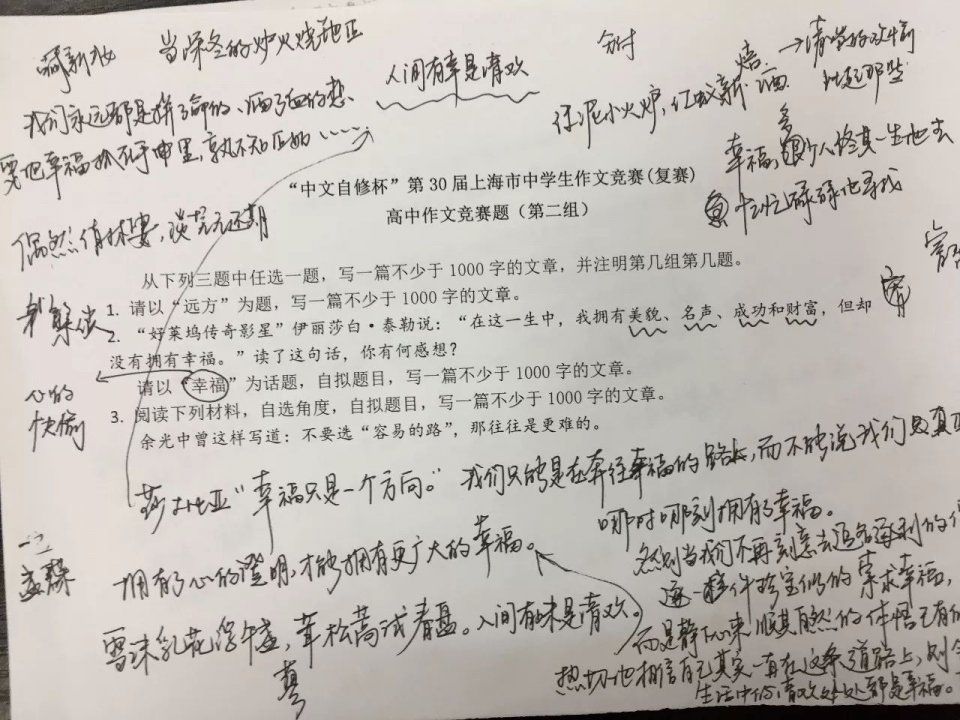 当深冬的炉火烧
人间有幸是清欢
我们永远都是拼了命的、洒了血的想
要把幸福抓在手里,孰不知正如……
红泥小火炉,红城新醅酒
→清学的欢愉
比起那些
幸福,多少人终其一生地去
忙忙碌碌地寻找
“中文自修杯”第30届上海市中学生作文竞赛(复赛)
高中作文竞赛题(第二组)
偶然值林叟,谈笑无还期
从下列三题中任选一题,写一篇不少于1000字的文章,并注明第几组第几题。
1. 请以“远方”为题,写一篇不少于1000字的文章。
2. “好莱坞传奇影星”伊丽莎白·泰勒说:“在这一生中,我拥有美貌、名声、成功和财富,但却
没有拥有幸福。”读了这句话,你有何感想?
请以“幸福”为话题,自拟题目,写一篇不少于1000字的文章。
3. 阅读下列材料,自选角度,自拟题目,写一篇不少于1000字的文章。
余光中曾这样写道:不要选“容易的路”,那往往是更难的。
心的
快愉
莎士比亚“幸福只是一个方向。”我们只能是在奔往幸福的路上,而不能说我们
哪时哪刻拥有了幸福。
拥有了心的澄明,才能拥有更广大的幸福。
然则当我们不再刻意去追名逐利的
逐一件珍宝似的索求幸福,
雪沫乳花浮午盏,茸松蒿试春盘。人间有味是清欢。
蓼
而是静下心来顺其自然的体悟已有的
热切地相信自己其实一直在这条道路上,则
生活中的清欢处处都是幸福。